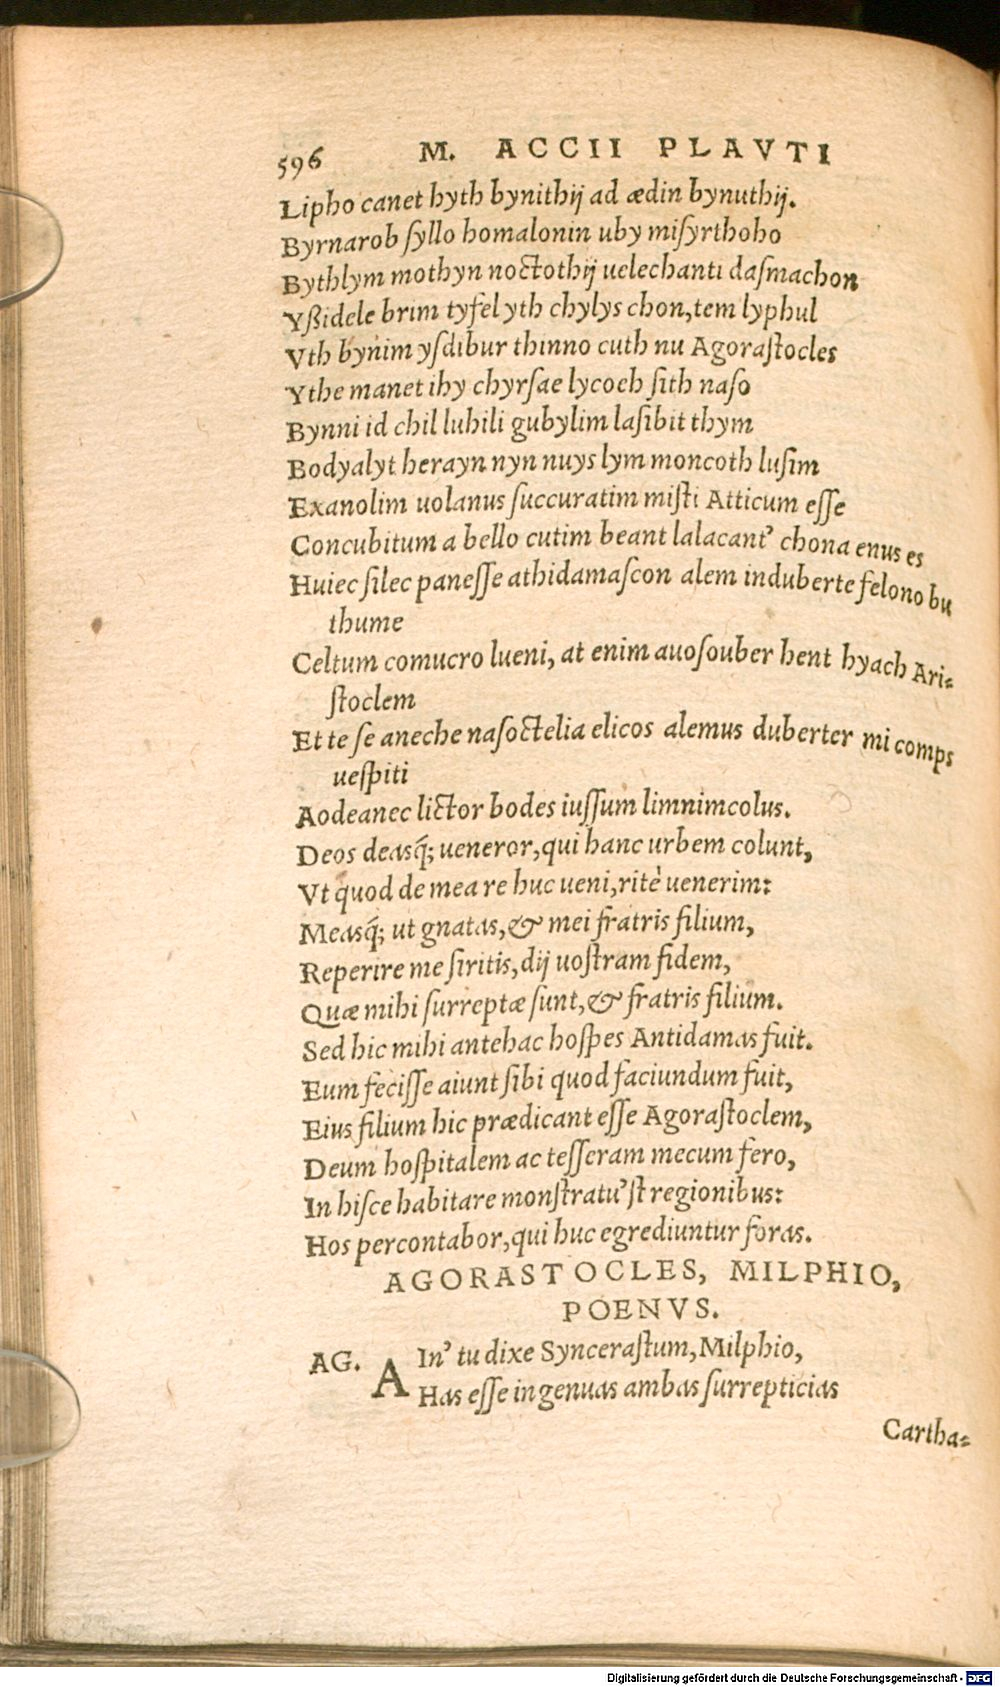 596 M. ACCII PLAVTI
Lipho canet hyth bynithij ad ædin bynuthij.
Byrnarob ſyllo homalonin uby miſyrthoho
Bythlym mothyn noctothij uelechanti daſmachon
Yßidele brim tyfel yth chylys chon,tem lyphul
Vth bynim yſdibur thinno cuth nu Agoraſtocles
Ythe manet ihy chyrſae lycoeh ſith naſo
Bynni id chil luhili gubylim laſibit thym
Bodyalyt herayn nyn nuys lym moncoth luſim
Exanolim uolanus ſuccuratim miſti Atticum eſſe
Concubitum a bello cutim beant lalacant' chona enus es
Huiec ſilec paneſſe athidamaſcon alem induberte felono bu
thume
Celtum comucro lueni, at enim auoſouber hent hyach Ari-
ſtoclem
Et te ſe aneche naſoctelia elicos alemus duberter mi comps
ueſpiti
Aodeanec lictor bodes iuſſum limnimcolus.
Deos deasq̃; ueneror,qui hanc urbem colunt,
Vt quod de mea re huc ueni,ritè uenerim:
Measq̃; ut gnatas,& mei fratris filium,
Reperire me ſiritis,dij uoſtram fidem,
Quæ mihi ſurreptæ ſunt,& fratris filium.
Sed hic mihi antehac hoſpes Antidamas fuit.
Eum feciſſe aiunt ſibi quod faciundum fuit,
Eius filium hic prædicant eſſe Agoraſtoclem,
Deum hoſpitalem ac teſſeram mecum fero,
In hiſce habitare monſtratu'ſt regionibus:
Hos percontabor,qui huc egrediuntur foras.
AGORASTOCLES, MILPHIO,
POENVS.
AG. AIn' tu dixe Synceraſtum,Milphio,
Has eſſe ingenuas ambas ſurrepticias
Cartha-
Digitalisierung gefördert durch die Deutsche Forschungsgemeinschaft - DFG